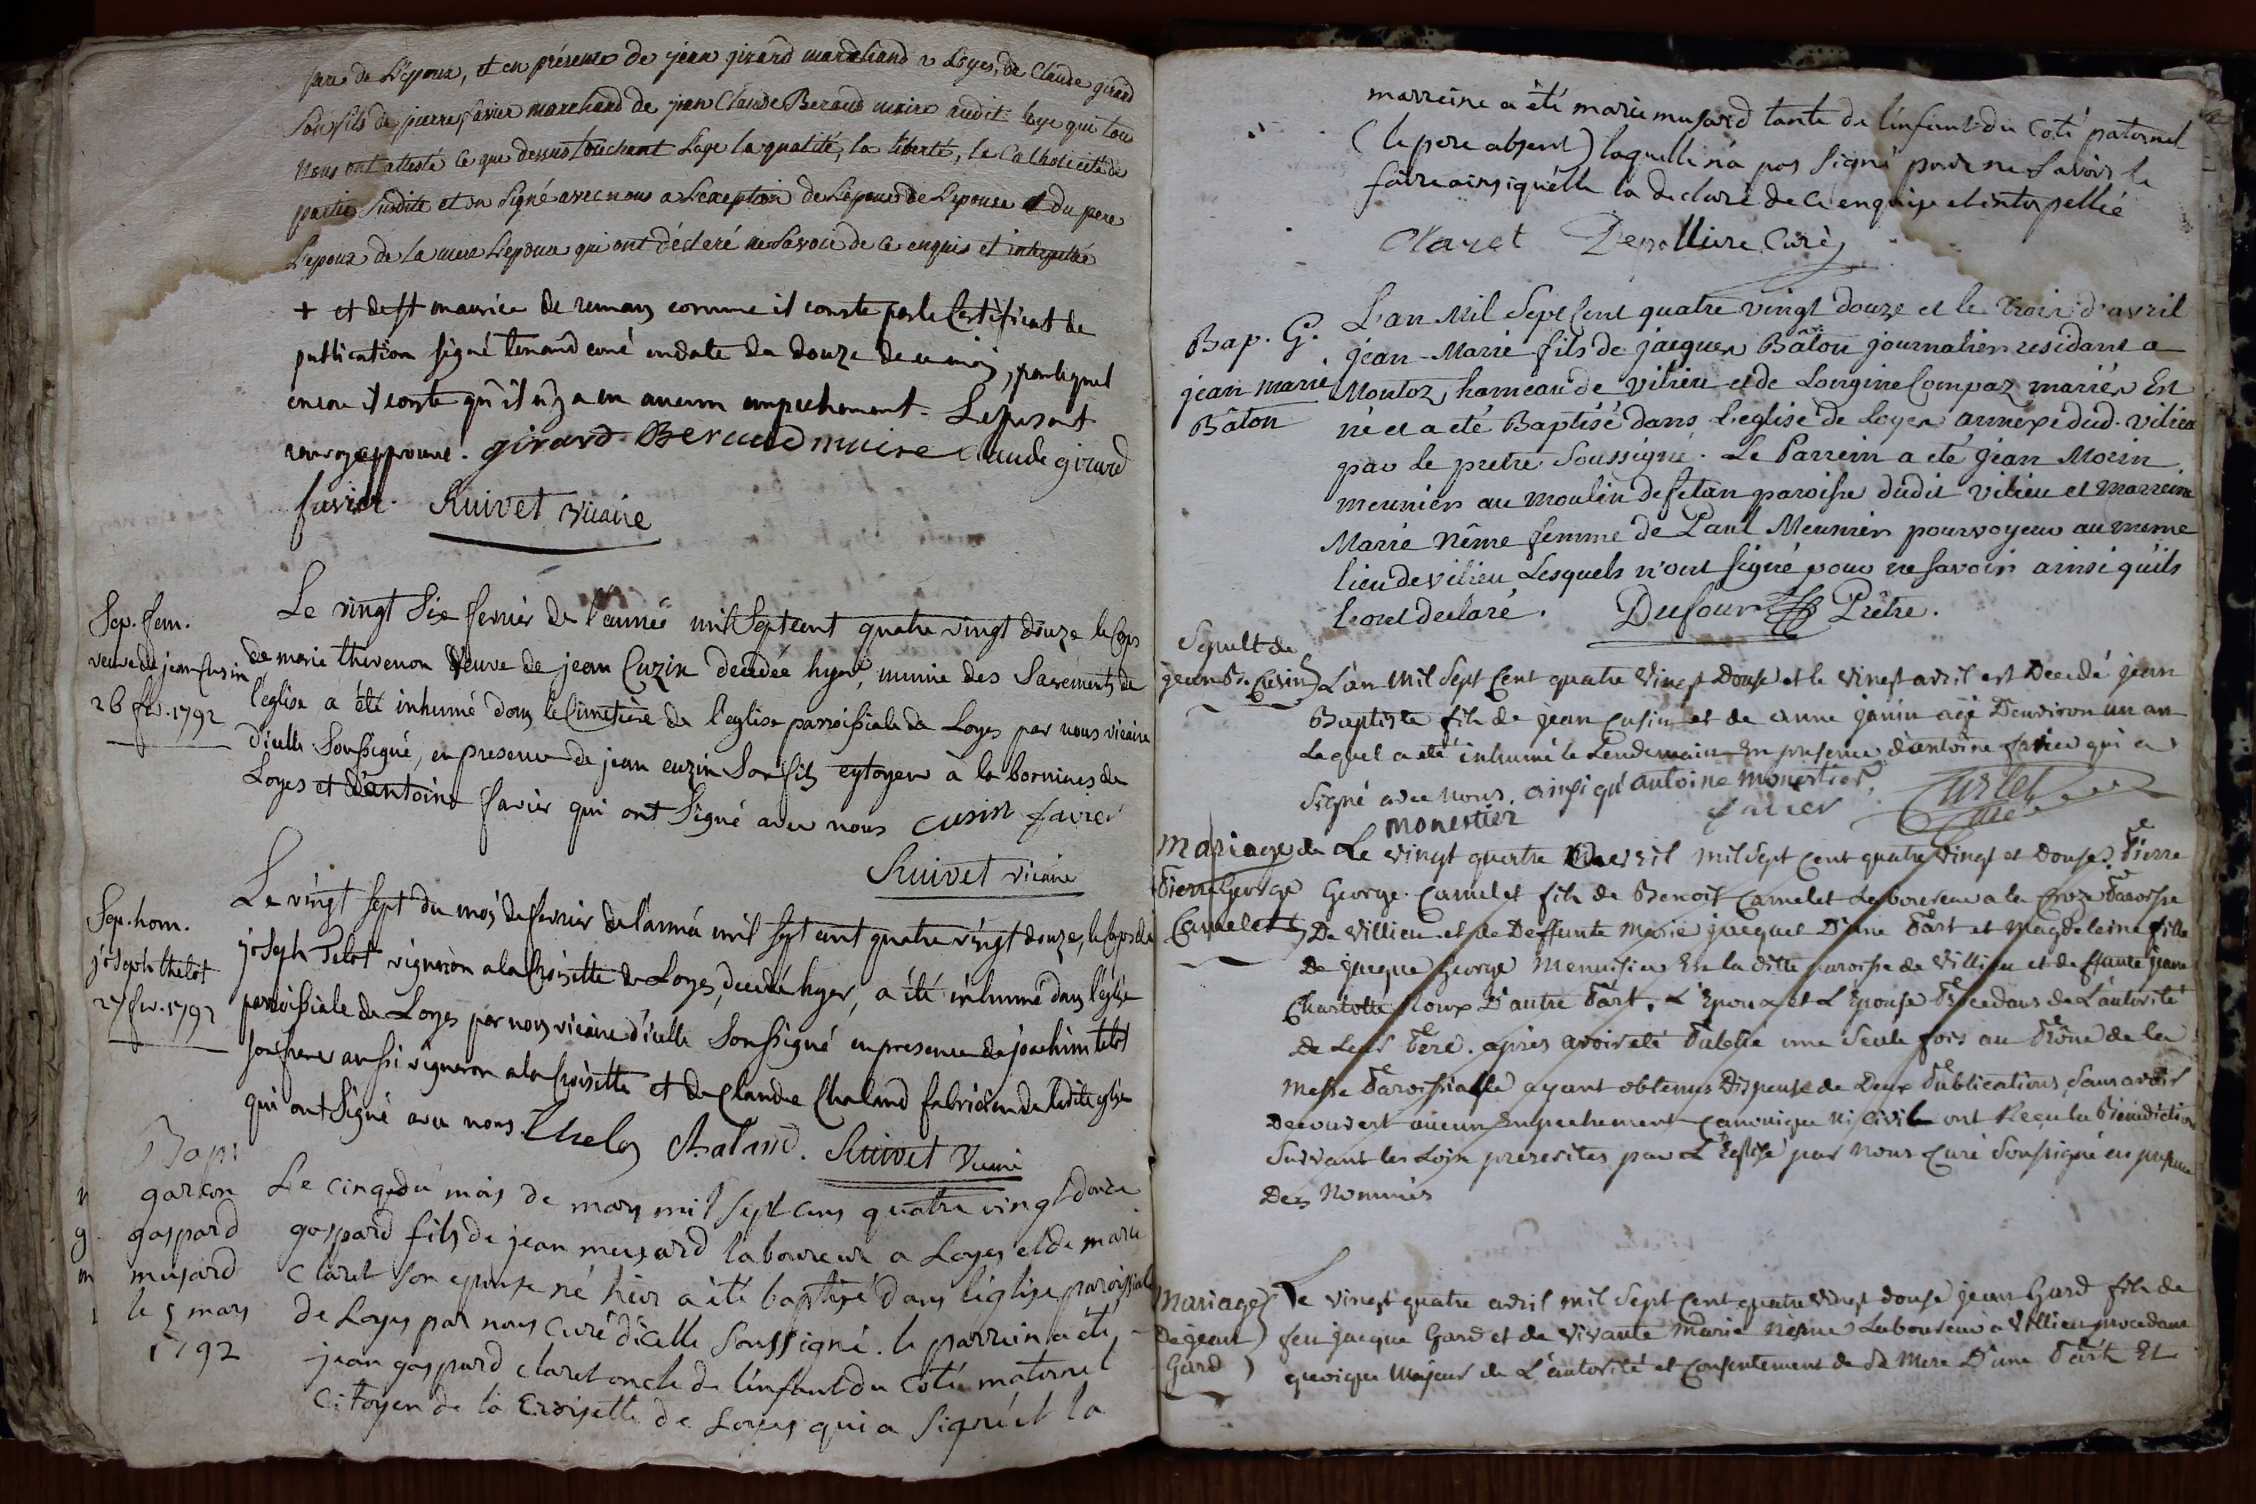 père de L'époux, et en présence de jean girard marchand a Loyes, de Claude girard
son fils de pierre favier marchand de jean Claude Beraud maire audit loye qui tous
nous ont attesté ce que dessus touchant L'age la qualité, la liberté, le Catholicité de
partie susdite et on signé avec nous a L'exeption de L'epoux de L'epouse et du pere
L'epoux de la mere L'epoux qui ont déclaré ne Savoir de ce enquis et interpellé
+ et de st maurice de remens comme il conste par le Certificat de
publication signé tenand curé en date du douze de ce mois, par lequel
encore il conste qu'il n'y a eu aucun empechement. Le present
renvoy approuvé. girard Beraud maire Claude girard
favier. Ruivet vicaire
Sep. fem.
veuve de jean Cusin
26 fev. 1792
Le vingt six fevrier de l'année mil Sept cent quatre vingt douze le Corps
de marie thevenon Veuve de jean Cuzin decedée hyer, munie des Sacrements de
l'eglise a été inhumé dans le Cimetière de l'eglise parroissiale de Loyes par nous vicaire
d'icelle Soussigné, en presence de jean cuzin Son fils cytoyen à la bornines de
Loyes et d'antoine favier qui ont Signé avec nous cusin favier
Ruivet vicaire
Sep. hom.
joseph thelot
27 fev. 1792
Le vingt sept du mois de fevrier de l'année mil sept cent quatre vingt douze, le Corps de
joseph Telot vigneron a la Croisette de Loyes, decedé hyer, a été inhumé dans l'eglise
parroissiale de Loyes par nous vicaire d'icelle Soussigné en presence de joachim telot
son frere aussi vigneron a la Croisette et de Claude Chaland fabricien de ladite eglise
qui ont Signé avec nous. Thelos Chaland. Ruivet Vicaire
Bap:
garson
gaspard
musard
le 5 mars
1792
Le cinq du mois de mars mil sept cens quatre vingt douze
gaspard fils de jean musard laboureur a Loyes et de marie
Claret son epouse né hier a été baptisé dans l'église paroissiale
de Loyes par nous Curé d'icelle Soussigné. le parrein a été
jean gaspard claret oncle de l'infant du Coté maternel
Citoyen de la Croisette de Loyes qui a Signé et la
marreine a été marie musard tante de l'infant du Coté paternel
(le pere absent) laquelle n'a pas signé pour ne Savoir le
faire ainsi qu'elle la declaré de ce enquise et interpellée
Claret Curé
Bap. G.
jean marie
Bâton
L'an Mil Sept Cent quatre vingt douze et le trois d'avril
jean-Marie fils de jacques Bâton journalier residant a
Montoz, hameau de vilieu et de Longine Compaz mariés Est
né et a été Baptisé dans L'eglise de Loyes annexe dud. vilieu
par le pretre Soussigné. Le Parrein a été jean Morin
meunier au moulin de fetan paroisse dudit vilieu et Marreine
Marie Nême femme de Paul Meunier pourvoyeur au meme
lieu de vilieu Lesquels n'ont signé pour ne savoir ainsi qu'ils
l'ont declaré. Dufour Prêtre.
Sepult de
jean Bte Cusin
L'an Mil Sept Cent quatre Vingt Douse et le Vingt avril est Decedé jean
Baptiste fils de jean Cusin et de anne janin agé D'environ un an
Lequel a eté inhumé le Lendemain En presence d'antoine favier qui a
signé avec nous. ainsi qu'antoine monestier.
monestier favier Curtet Curé
Mariage de
Pierre George
Camelet
Le vingt quatre avril mil Sept Cent quatre Vingt et Douse Pierre
George Camelet fils de Benoit Camelet Laboureur a la Croze Paroisse
De Villieu et de Deffunte Marie jacquet D'une Part et Magdeleine fille
De jacque George Menuisier En la ditte paroisse de Villieu et de ffunte jeane
Charlotte Roux D'autre Part. L'Epoux et L'Epouse Procedans de L'autorité
De Leur Pere. apres avoir eté Publié une Seule fois au Prône de la
Messe Paroissialle ayant obtenus Dispense de Deux Publications, Sans avoir
Decouvert aucun Empechement Canonique ni Civil ont Reçu la Benediction
Suivant les Loix prescrites par L'Eglise par Nous Curé Soussigné en presence
Des Nommés
Mariage
De jean
Gard
Le vingt quatre avril mil Sept Cent quatre Vingt douse jean Gard fils de
feu jacque Gard et de Vivante Marie Neme Laboureur a Villieu procedant
quoique Majeur de L'autorité et Consentement de Sa Mere D'une Part Et